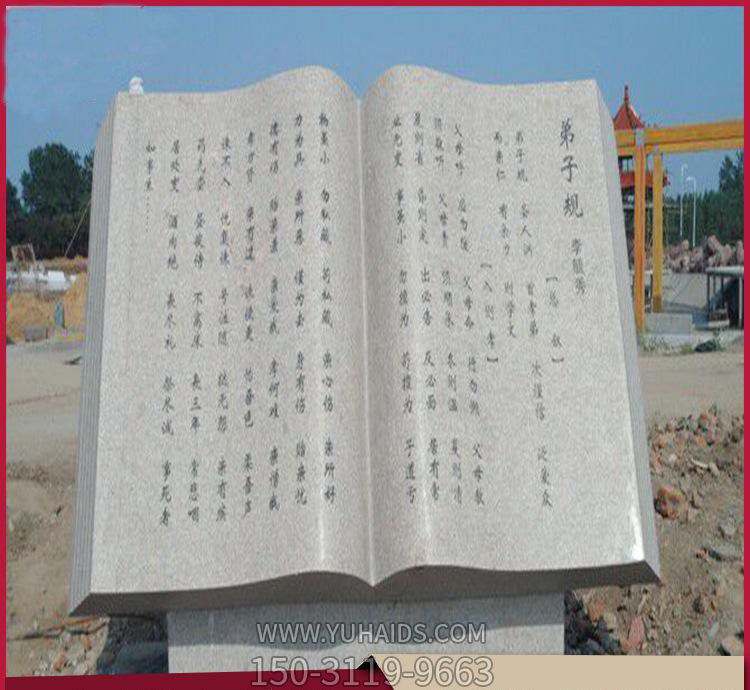 弟子规 李毓秀
【总 叙】
弟子规 圣人训 首孝弟 次谨信 泛爱众
而亲仁 有余力 则学文
【入则孝】
父母呼 应勿缓 父母命 行勿懒 父母教
须敬听 父母责 须顺承 冬则温 夏则清
晨则省 昏则定 出必告 反必面 居有常
业无变 事虽小 勿擅为 苟擅为 子道亏
物虽小 勿私藏 苟私藏 亲心伤 亲所好
力为具 亲所恶 谨为去 身有伤 贻亲忧
德有伤 贻亲羞 亲爱我 孝何难 亲憎我
孝方贤 亲有过 谏使更 怡吾色 柔吾声
谏不入 悦复谏 号泣随 挞无怨 亲有疾
药先尝 昼夜侍 不离床 丧三年 常悲咽
居处变 酒肉绝 丧尽礼 祭尽诚 事死者
如事生……
WWW.YUHAIDS.COM
150-3119-9663